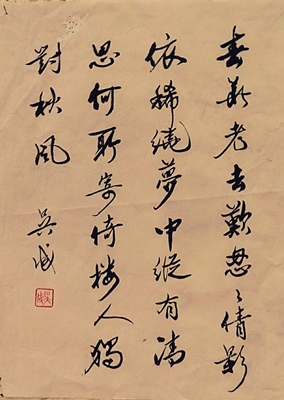 春老去歎怱〻倩影
依稀繞夢中縱有清
思何所寄倚樓人獨
對秋風
吳